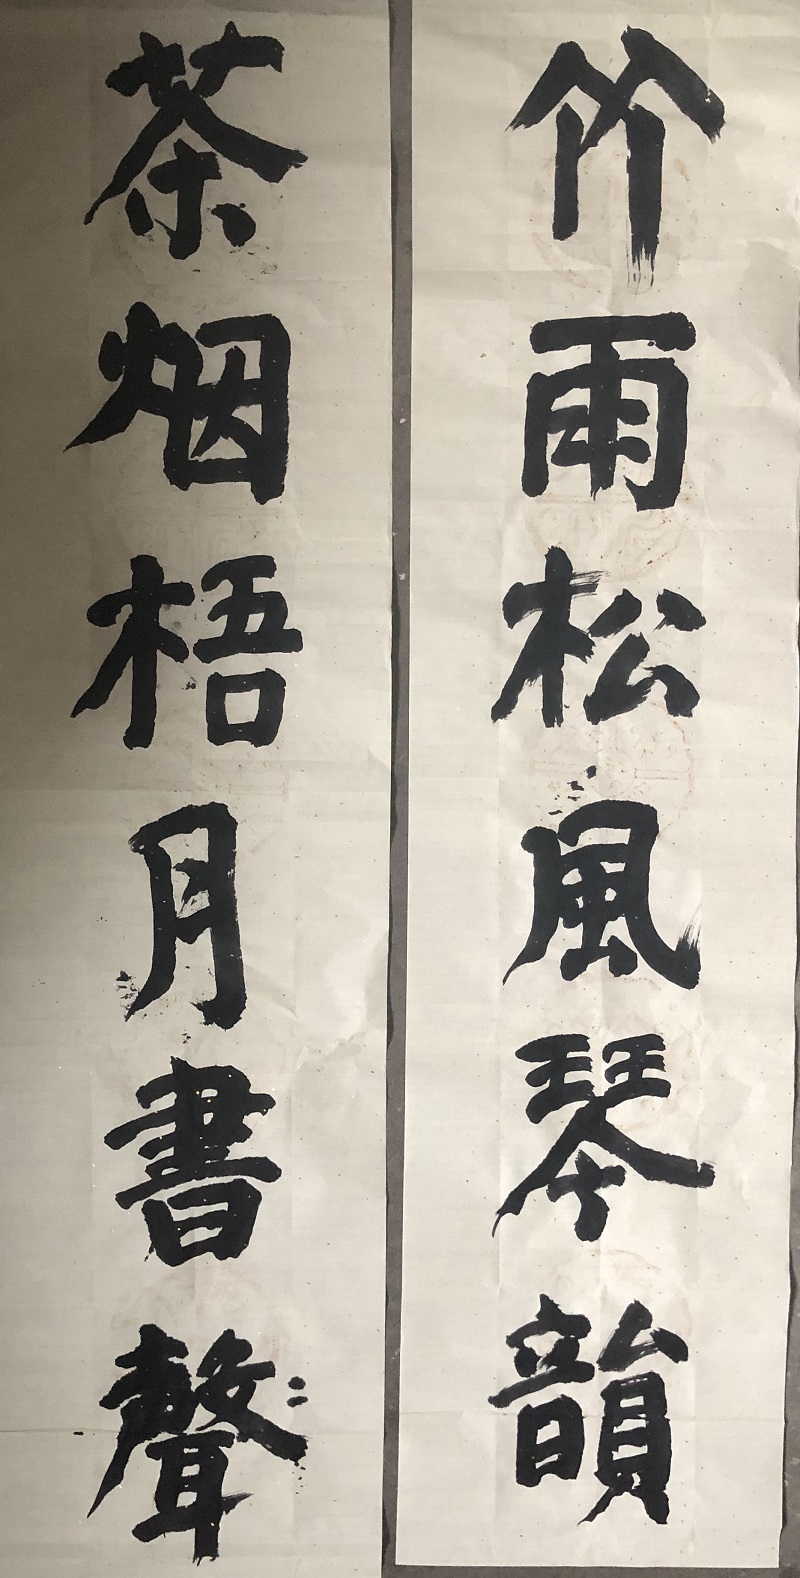 竹雨松風琴韻
茶烟梧月書聲